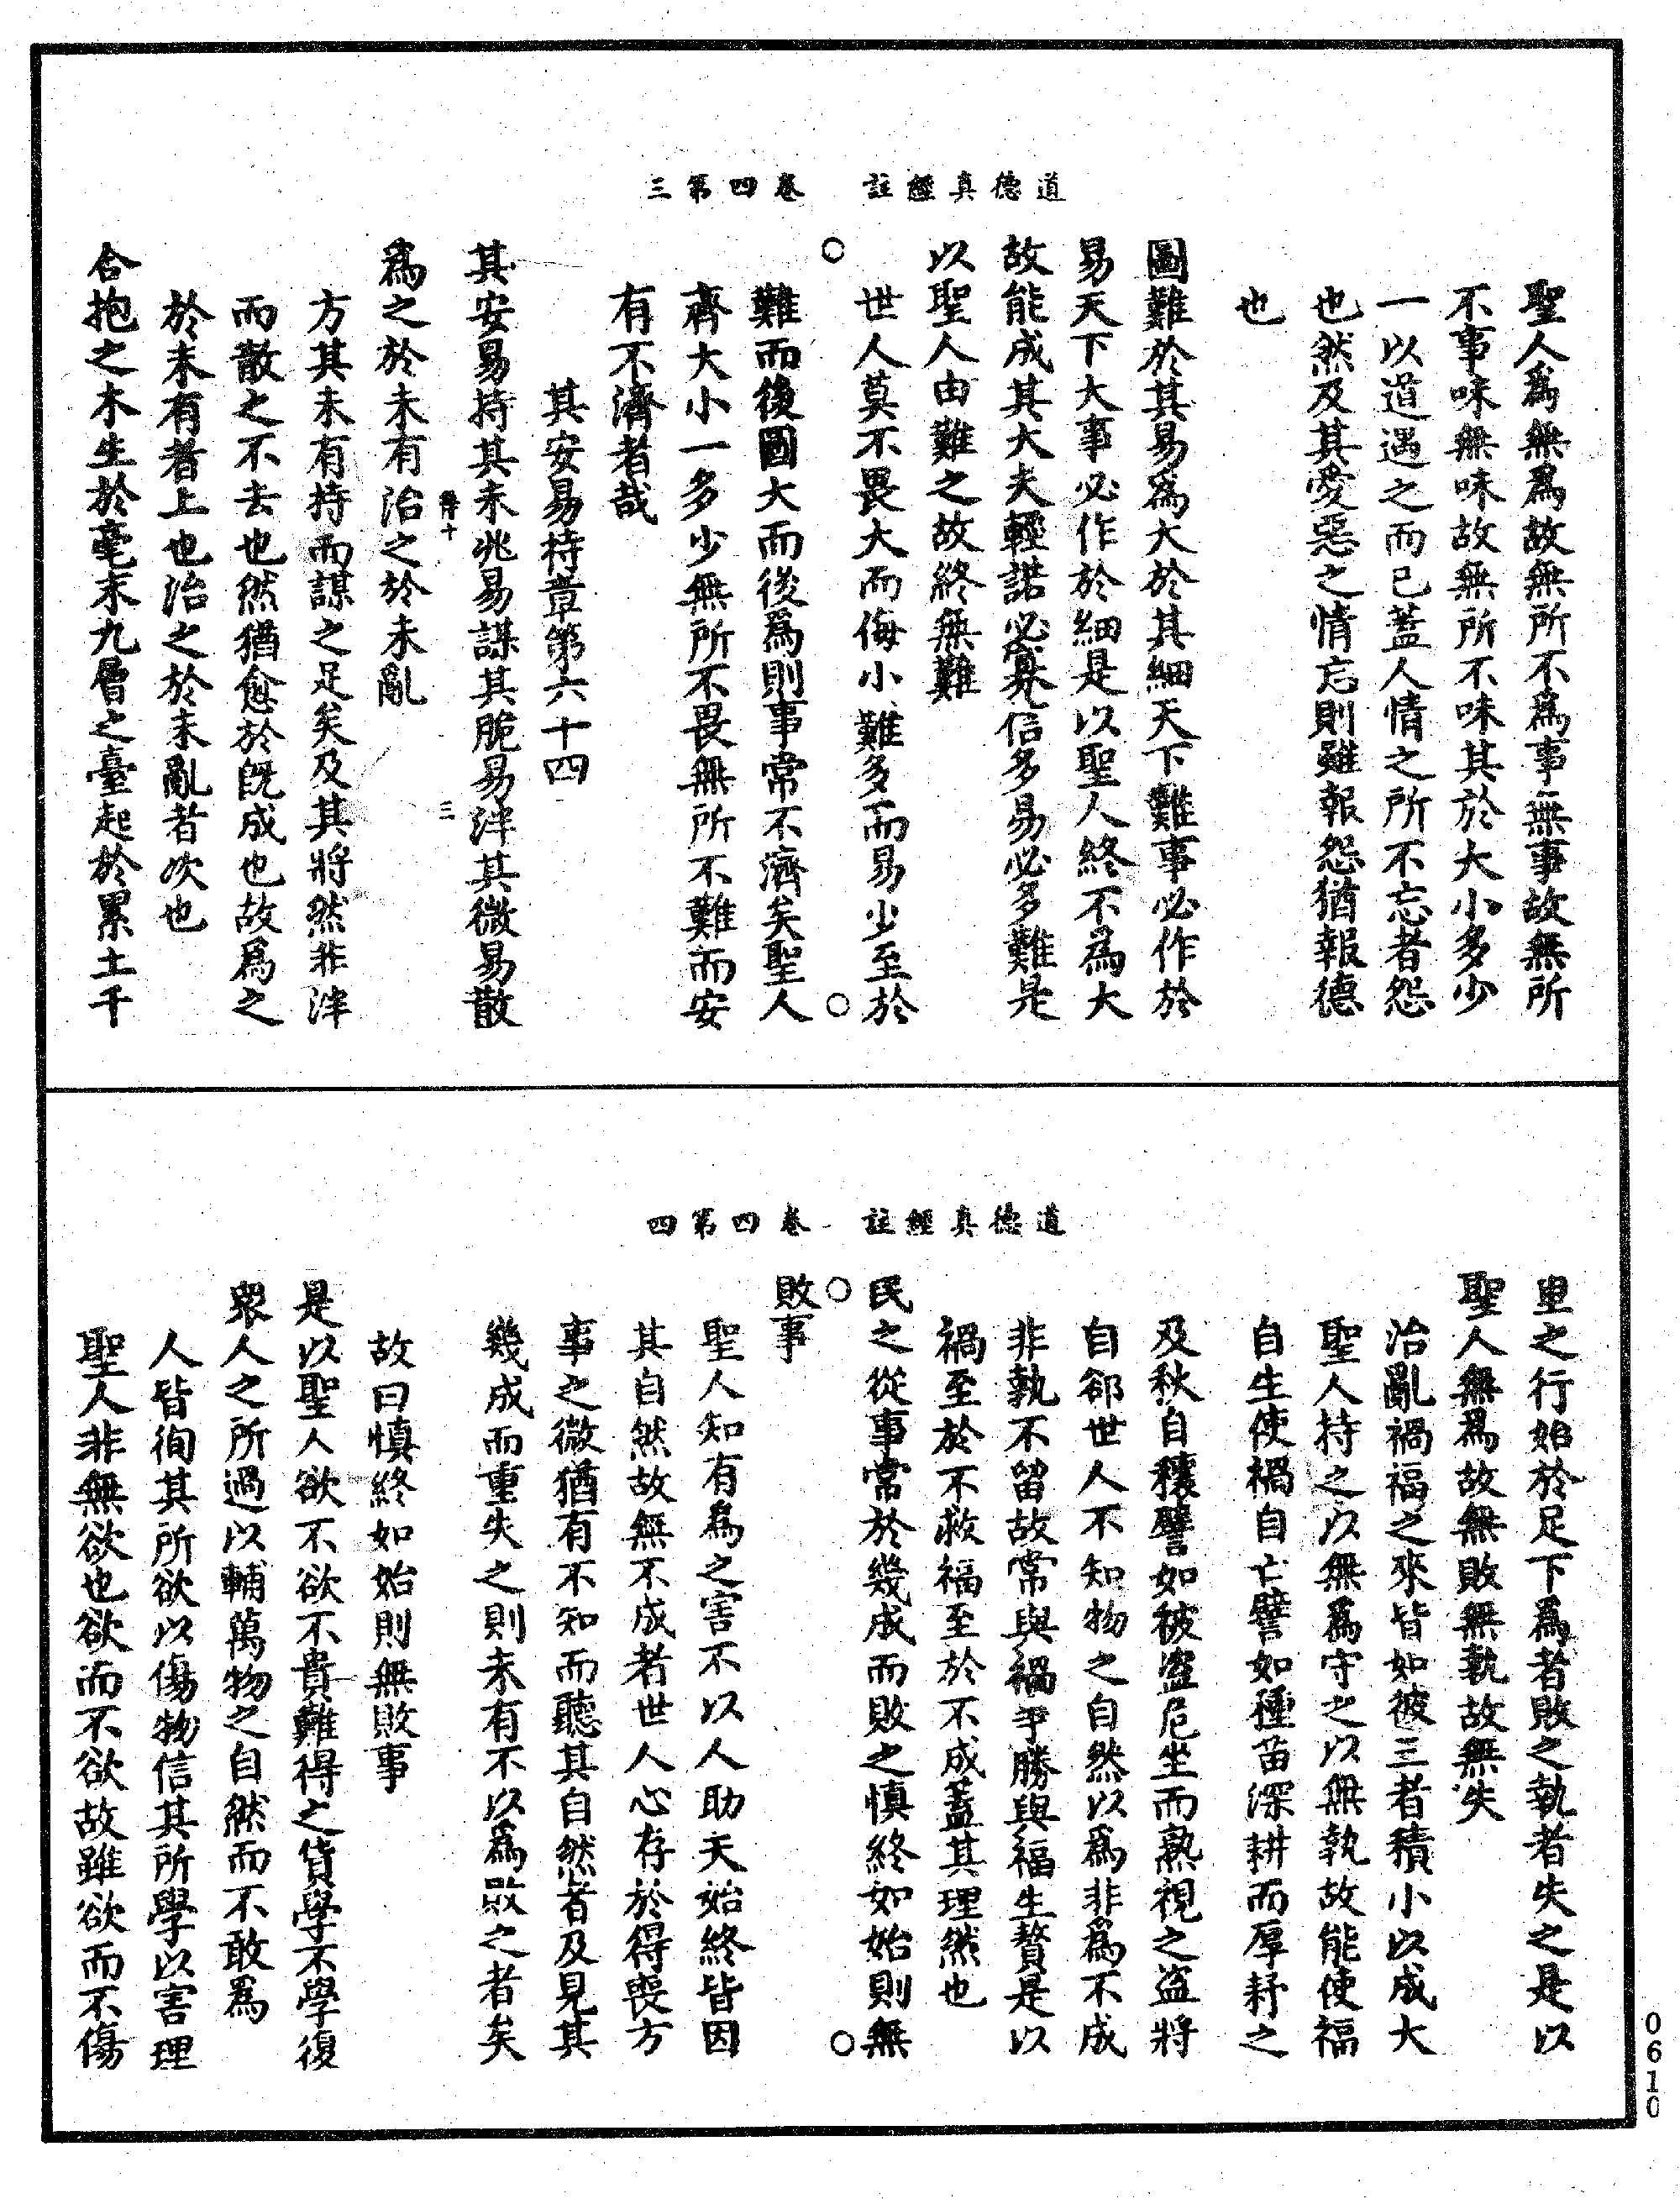 道德真經註　卷四第三
聖人為無為故無所不為事無事故無所
不事味無味故無所不味其於大小多少
一以道遇之而已蓋人情之所不忘者怨
也然及其愛惡之情忘則雖報怨猶報德
也
圖難於其易為大於其細天下難事必作於
易天下大事必作於細是以聖人終不為大
故能成其大夫輕諾必寡信多易必多難是
以聖人由難之故終無難
世人莫不畏大而侮小難多而易少至於
難而後圖大而後為則事常不濟矣聖人
齊大小一多少無所不畏無所不難而安
有不濟者哉
其安易持章第六十四
其安易持其未兆易謀其脆易泮其微易散
三
為之於未有治之於未亂
方其未有持而謀之足矣及其將然非泮
而散之不去也然猶愈於既成也故為之
於未有者上也治之於未亂者次也
合抱之木生於毫末九層之臺起於累土千
道德真經註　卷四第四
里之行始於足下為者敗之執者失之是以
聖人無為故無敗無執故無失
治亂禍福之來皆如彼三者積小以成大
聖人持之以無為守之以無執故能使福
自生使禍自亡譬如種苗深耕而厚耔之
及秋自穰譬如彼盜危坐而熟視之盜將
自郤世人不知物之自然以為非為不成
非執不留故常與禍爭勝與福生贅是以
禍至於不救福至於不成蓋其理然也
民之從事常於幾成而敗之慎終如始則無
敗事
聖人知有為之害不以人助天始終皆因
其自然故無不成者世人心存於得喪方
事之微猶有不知而聽其自然者及見其
幾成而重失之則未有不以為敗之者矣
故曰慎終如始則無敗事
是以聖人欲不欲不貴難得之貨學不學復
眾人之所過以輔萬物之自然而不敢為
人皆徇其所欲以傷物信其所學以害理
聖人非無欲也欲而不欲故雖欲而不傷
0610